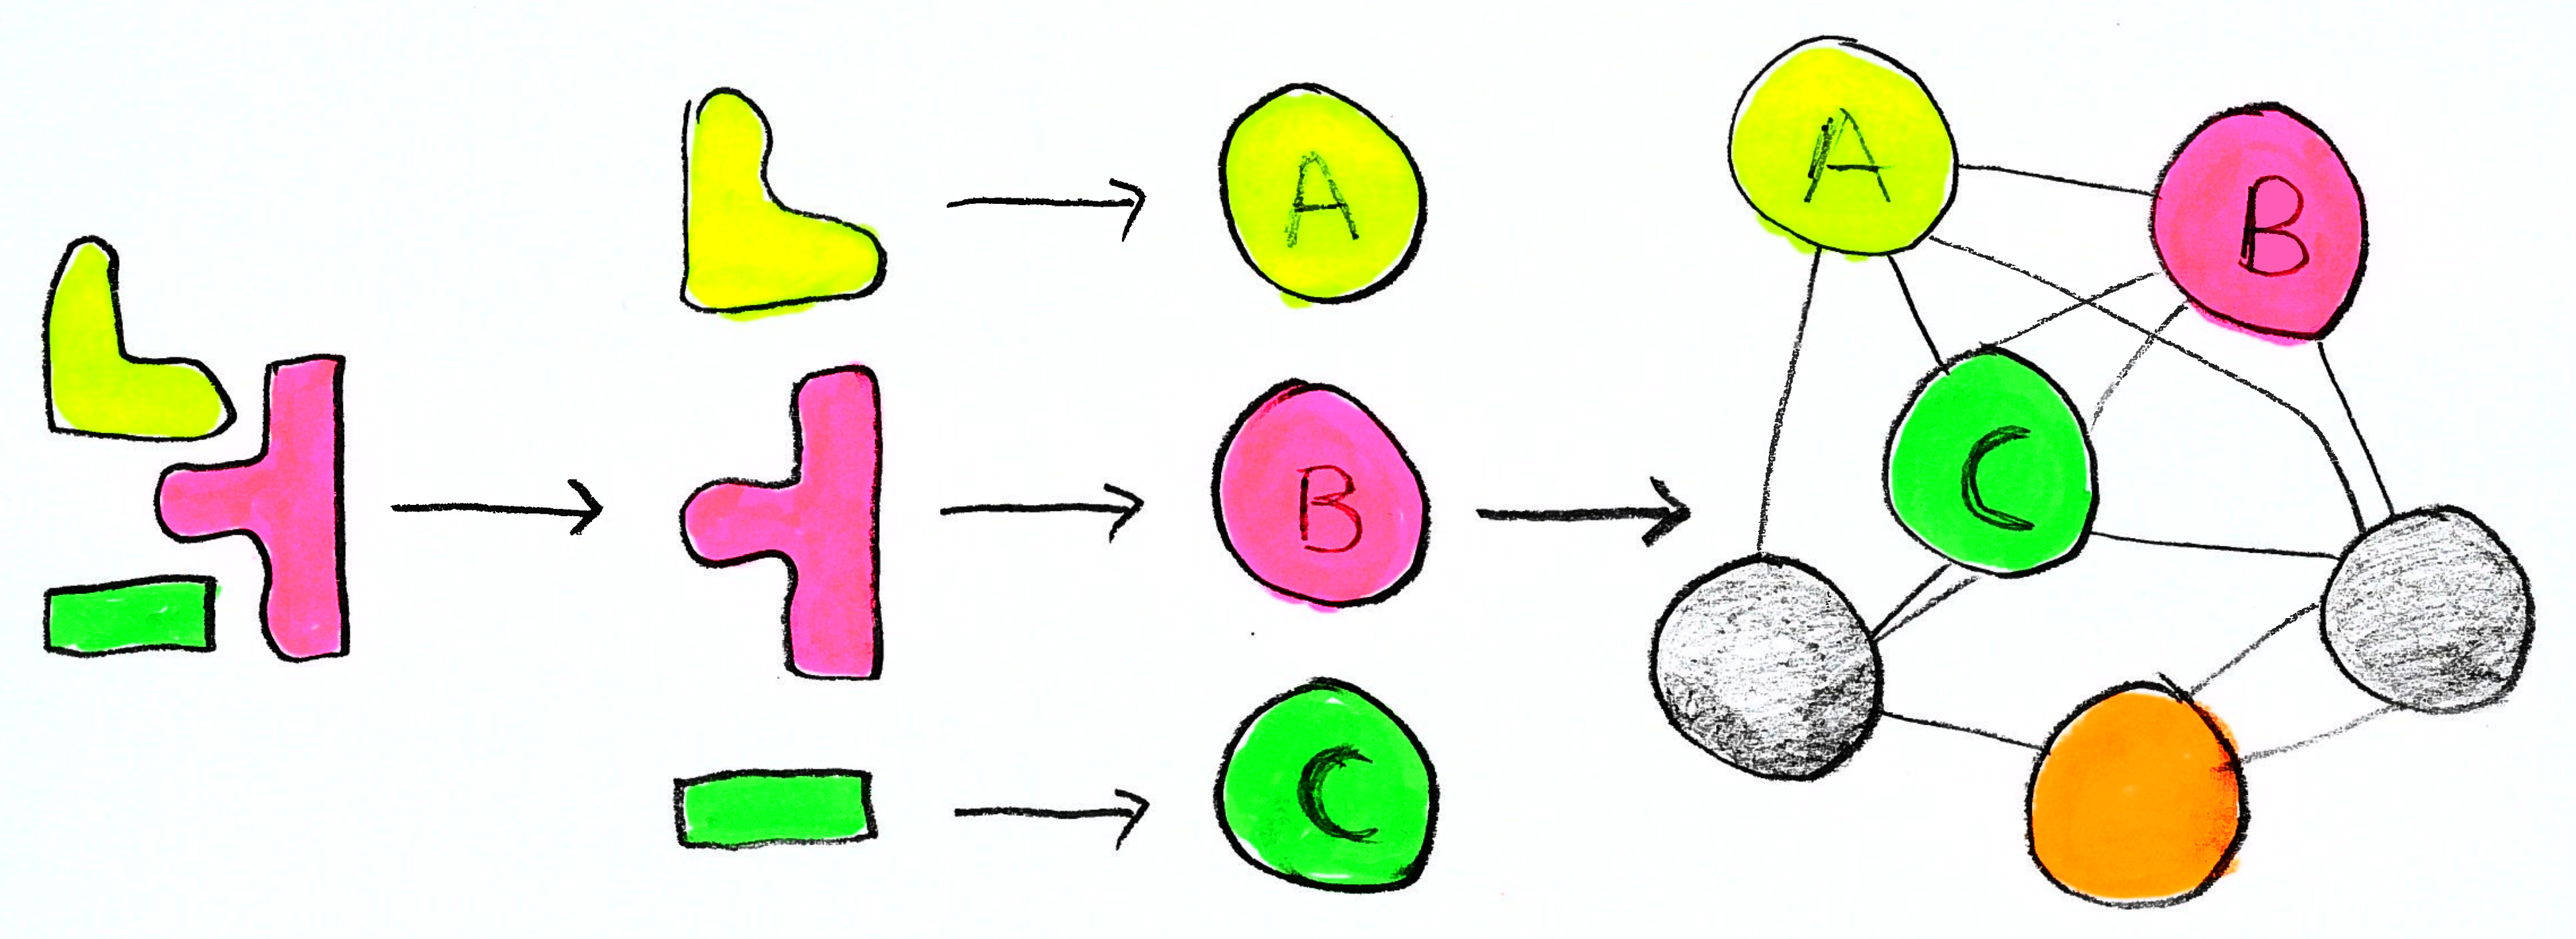 A
B
C
A
B
C